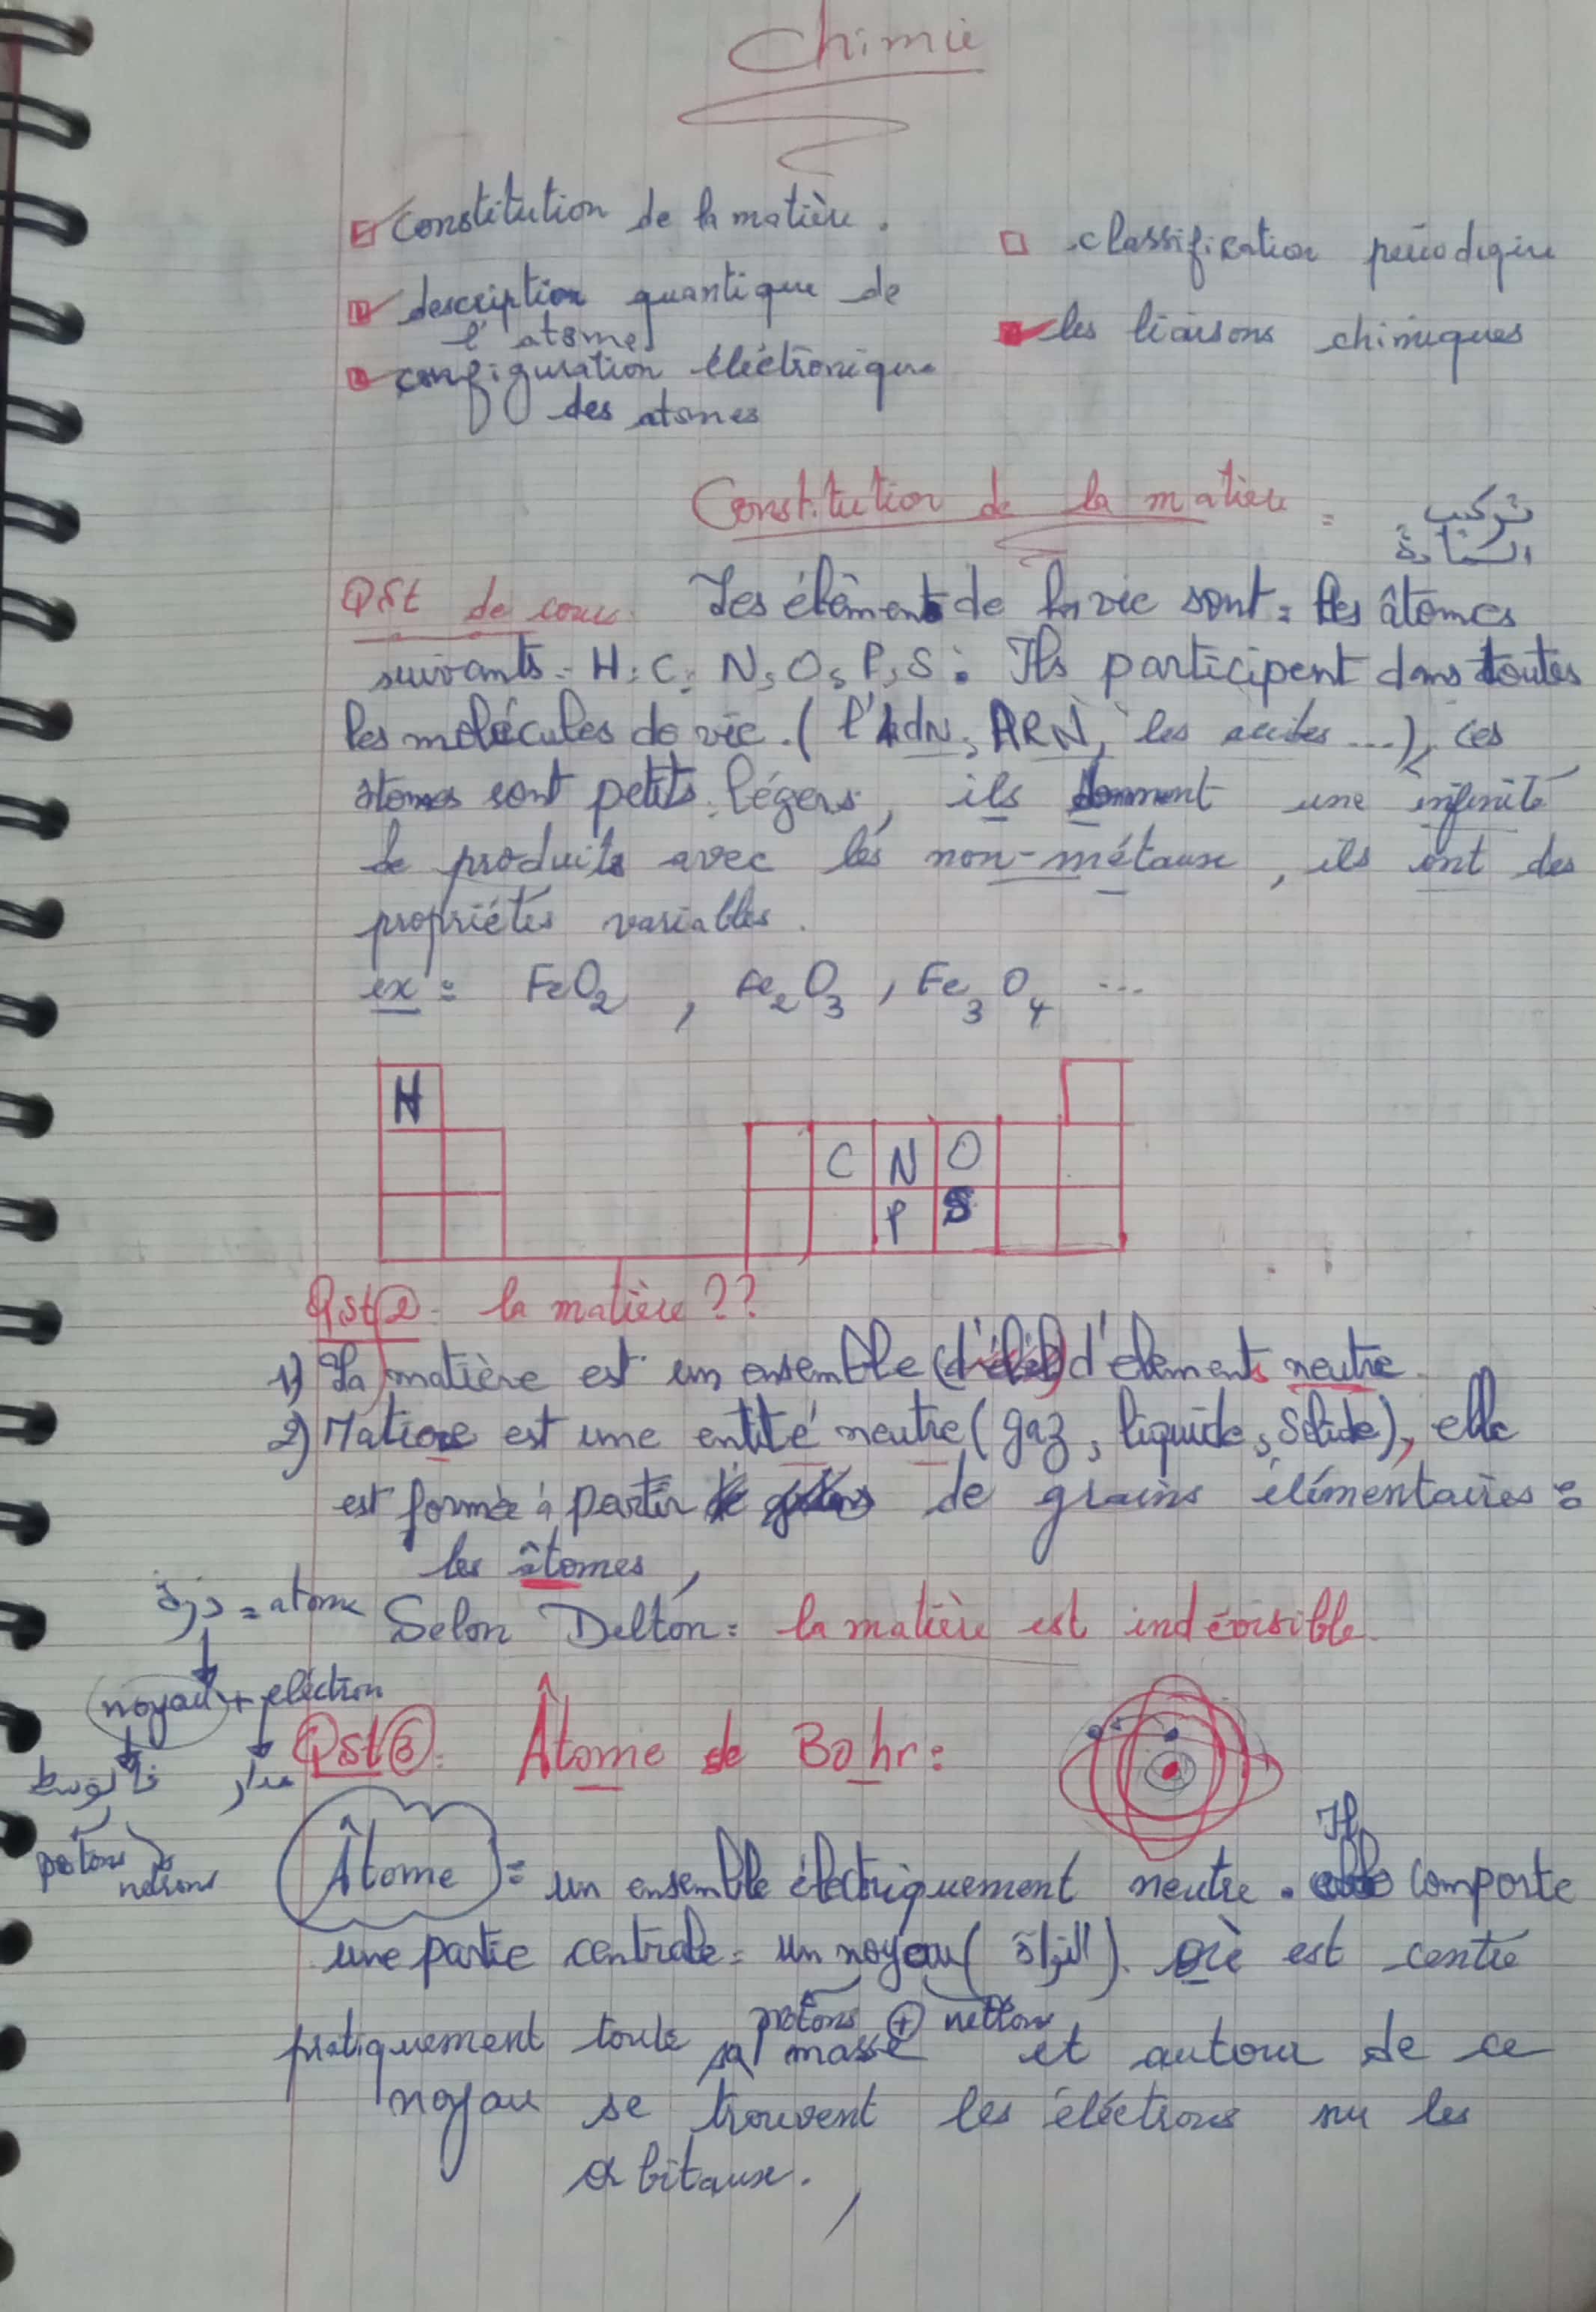 Chimie
constitution de la matière.
description quantique de
l'atome
configuration éléctronique
des atomes
classification périodique
les liaisons chimiques
Constitution de la matière =
تركيب
المادة
Qst de cour. Les élèments de la vie sont = les âtomes
suivants - H, C, N, O, P, S : Ils participent dans toutes
les molécules de vie. (l'Adn, ARN, les acides ...), ces
atomes sont petits, légers, ils donnent une infinité
de produits avec les non-métaux, ils ont des
propriétés variables.
ex = FeO2, Fe2O3, Fe3O4 ...
H
C N O
P S
Qst 2 - la matière ??
1) La matière est un ensemble d'élements neutre.
2) Matiere est une entité neutre (gaz, liquide, solide), elle
est formée à partir de grains élémentaires :
les âtomes,
ذرة = atome
Selon Delton = la matière est indévisible.
noyau + eléctron
فالوسط مدار
Qst 3 : Âtome de Bohr :
protons
netrons
Âtome = un ensemble électriquement neutre. Il comporte
une partie centrale = un noyau (النواة) où est centré
protons + netrons
pratiquement toute sa masse et autour de ce
noyau se trouvent les éléctrons sur les
orbitaux.